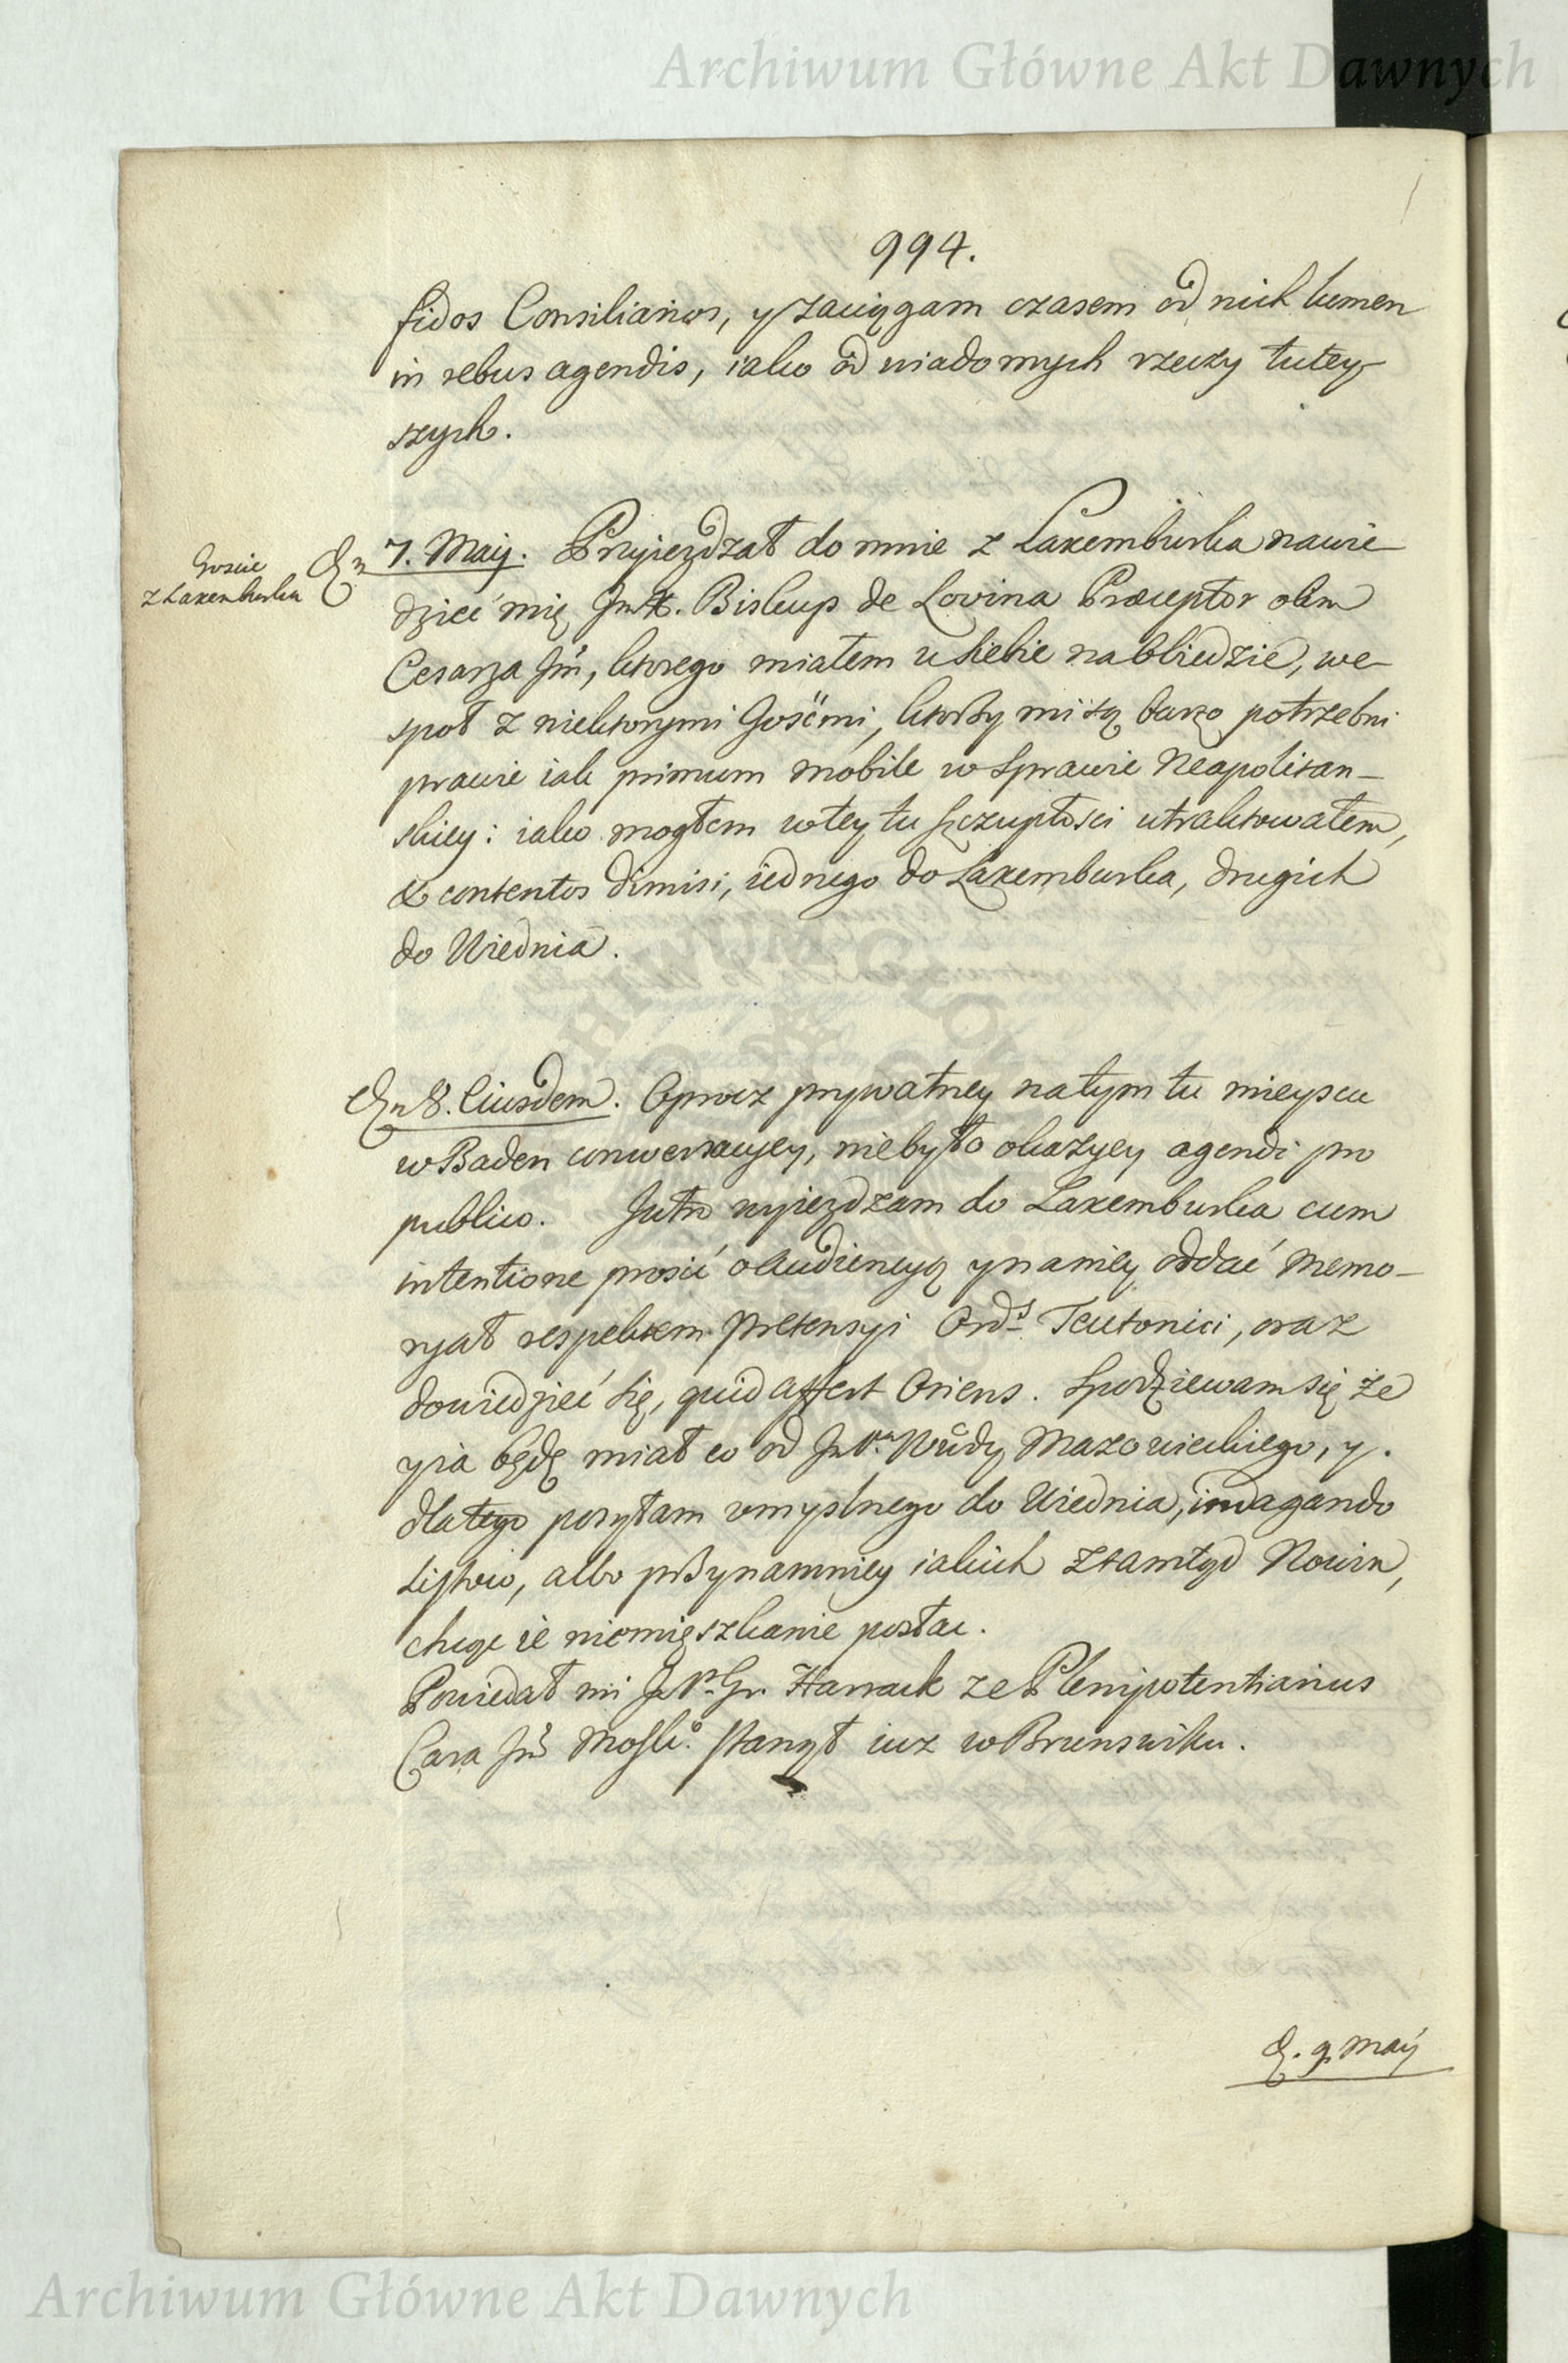 Archiwum Główne Akt Dawnych
994.
fidos Consiliarios, y zaciągam czasem od nich lumen
in rebus agendis, iako od wiadomych rzeczy tutey-
szych.
Goście
z Laxenburka
7. Maij. Przyiezdzał do mnie z Laxemburka nawie-
dzieć mię Jmć X. Biskup de Lovina Præceptor olim
Cesarza Jmć, ktorego miałem u siebie na Obiedzie, we-
społ z niektorymi Gośćmi, ktorzy mi są barzo potrzebni
prawie iak primum mobile w Sprawie Neapolitan-
skiey: iako mogłem w tey tu szczupłości utraktowałem,
& contentos dimisi, iednego do Laxemburka, drugich
do Wiednia.
8. Eiusdem. Oprocz prywatney na tym tu mieyscu
w Baden conwersacyey, niebyło okazyey agendi pro
publico. Jutro wyiezdzam do Laxemburka cum
intentione prosić o Audiencyą y naniey oddać Memo-
ryał respektem pretensyi Ords Teutonici, oraz
dowiedzieć się, quid affert Oriens. Spodziewam się że
y ia będę miał co od JnPa Wdy Mazowieckiego, y.
dlatego posyłam vmyslnego do Wiednia, indagando
Listow, albo przynamniey iakich ztamtąd Nowin,
chcąc ie niemięszkanie posłac.
Powiedał mi JnP. Gr. Harrach ze Plenipotentiarius
Cara Jmć Moski. stanął iuz w Brunswiku.
9. Maij
Archiwum Główne Akt Dawnych